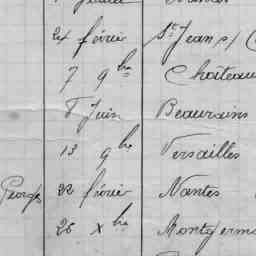 24 février St Jean s/
7 9bre Château
8 Juin Beaurains
13 9bre Versailles
Georges 22 février Nantes
26 Xbre Montgerm